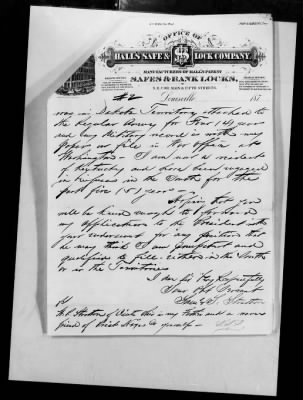 OFFICE OF
HALL'S SAFE & LOCK COMPANY,
MANUFACTURERS OF HALL'S PATENT
SAFES & BANK LOCKS,
S.E. COR. MAIN & FIFTH STREETS.
#2 Louisville 187
was in Dakota Territory attached to
the Regular Army for Four (4) years
and my Military record is with my
papers on file in War Office at
Washington - I am now a resident
of Kentucky and have been engaged
in business in the South for the
past five (5) years -
Hoping that you
will be kind enough to forward
my application to the President with
your endorsement for any position that
he may think I am competent and
qualified to fill - either in the South
or in the Territories
I am Sir Very Respectfully
Your Obt Servant
this is my Father and a warm
friend of